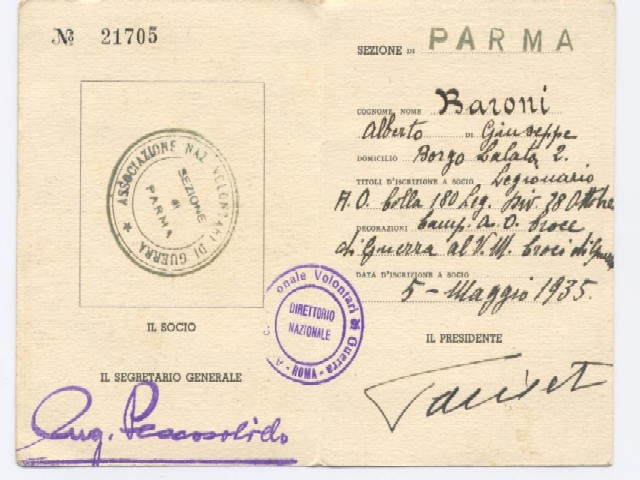 Nº 21705
ASSOCIAZIONE NAZ. VOLONTARI DI GUERRA
SEZIONE
di
PARMA
IL SOCIO
IL SEGRETARIO GENERALE
Aug. Pescosolido
onale Volontari di Guerra
DIRETTORIO
NAZIONALE
- ROMA -
SEZIONE DI PARMA
COGNOME, NOME Baroni
Alberto DI Giuseppe
DOMICILIO Borgo Lalatà 2.
TITOLI D'ISCRIZIONE A SOCIO Legionario
A.O. colla 180 Leg. Div. 28 Ottobre
DECORAZIONI Camp. A.O. Croce
di Guerra al V.M. Croci di Guerra
DATA D'ISCRIZIONE A SOCIO
5 - Maggio 1935.
IL PRESIDENTE